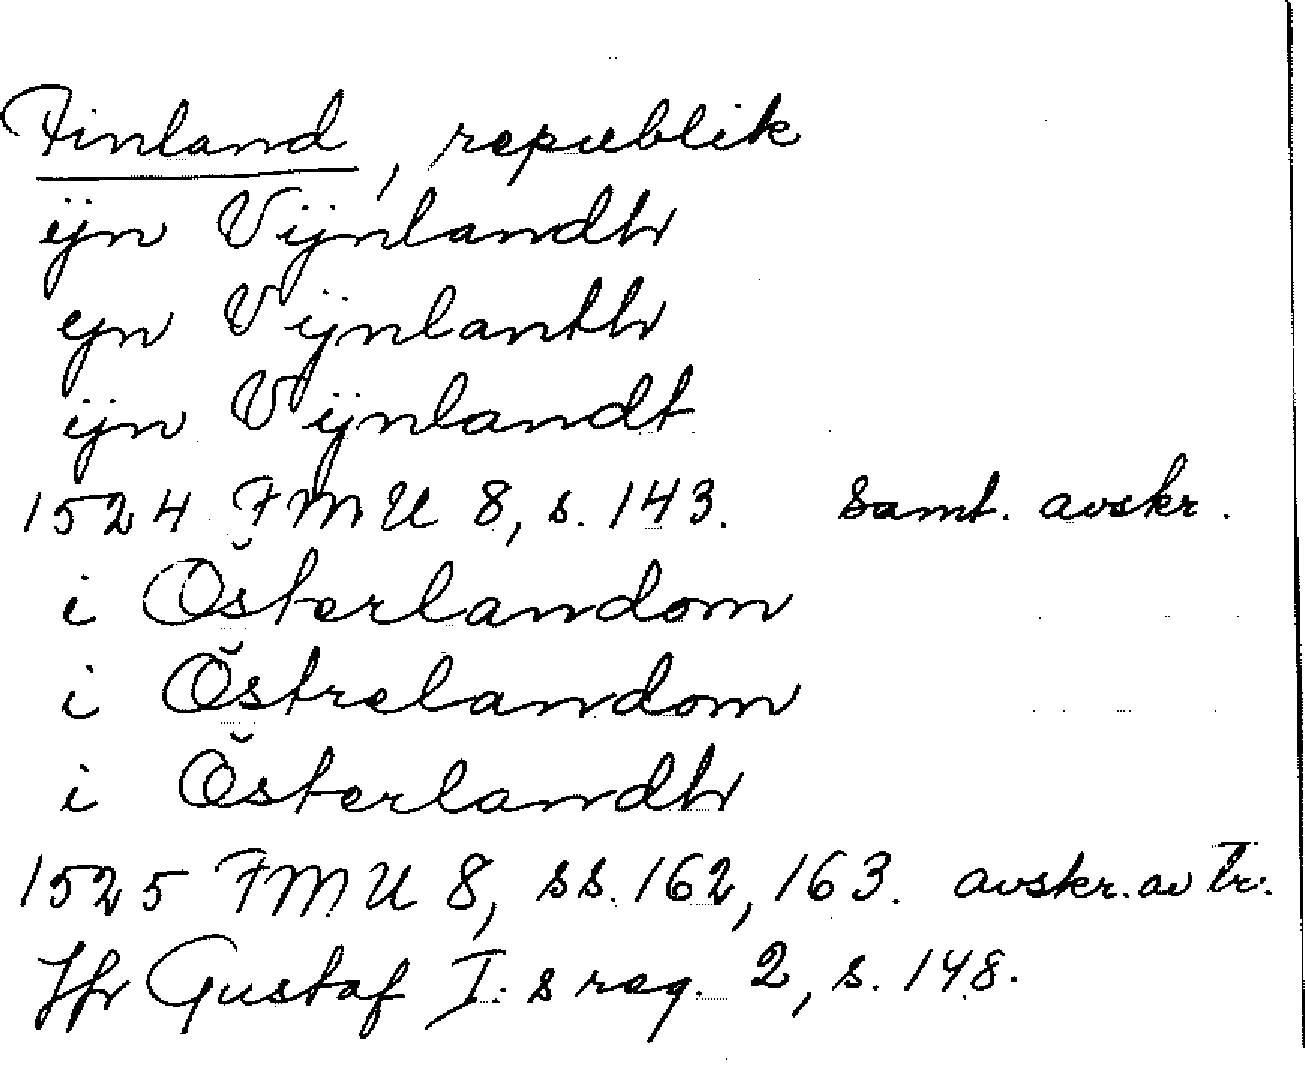 Finland, republik
ÿn Vijnlandh
yn Vijnlanth
ÿn Vijnlandt
1524 FMU 8, s. 143. Samt. avskr.
i Österlandom
i Östrelandom
i Österlandh
1525 FMU 8, ss. 162, 163. avskr. av Tr.
Jfr Gustaf I:s reg. 2, s. 148.